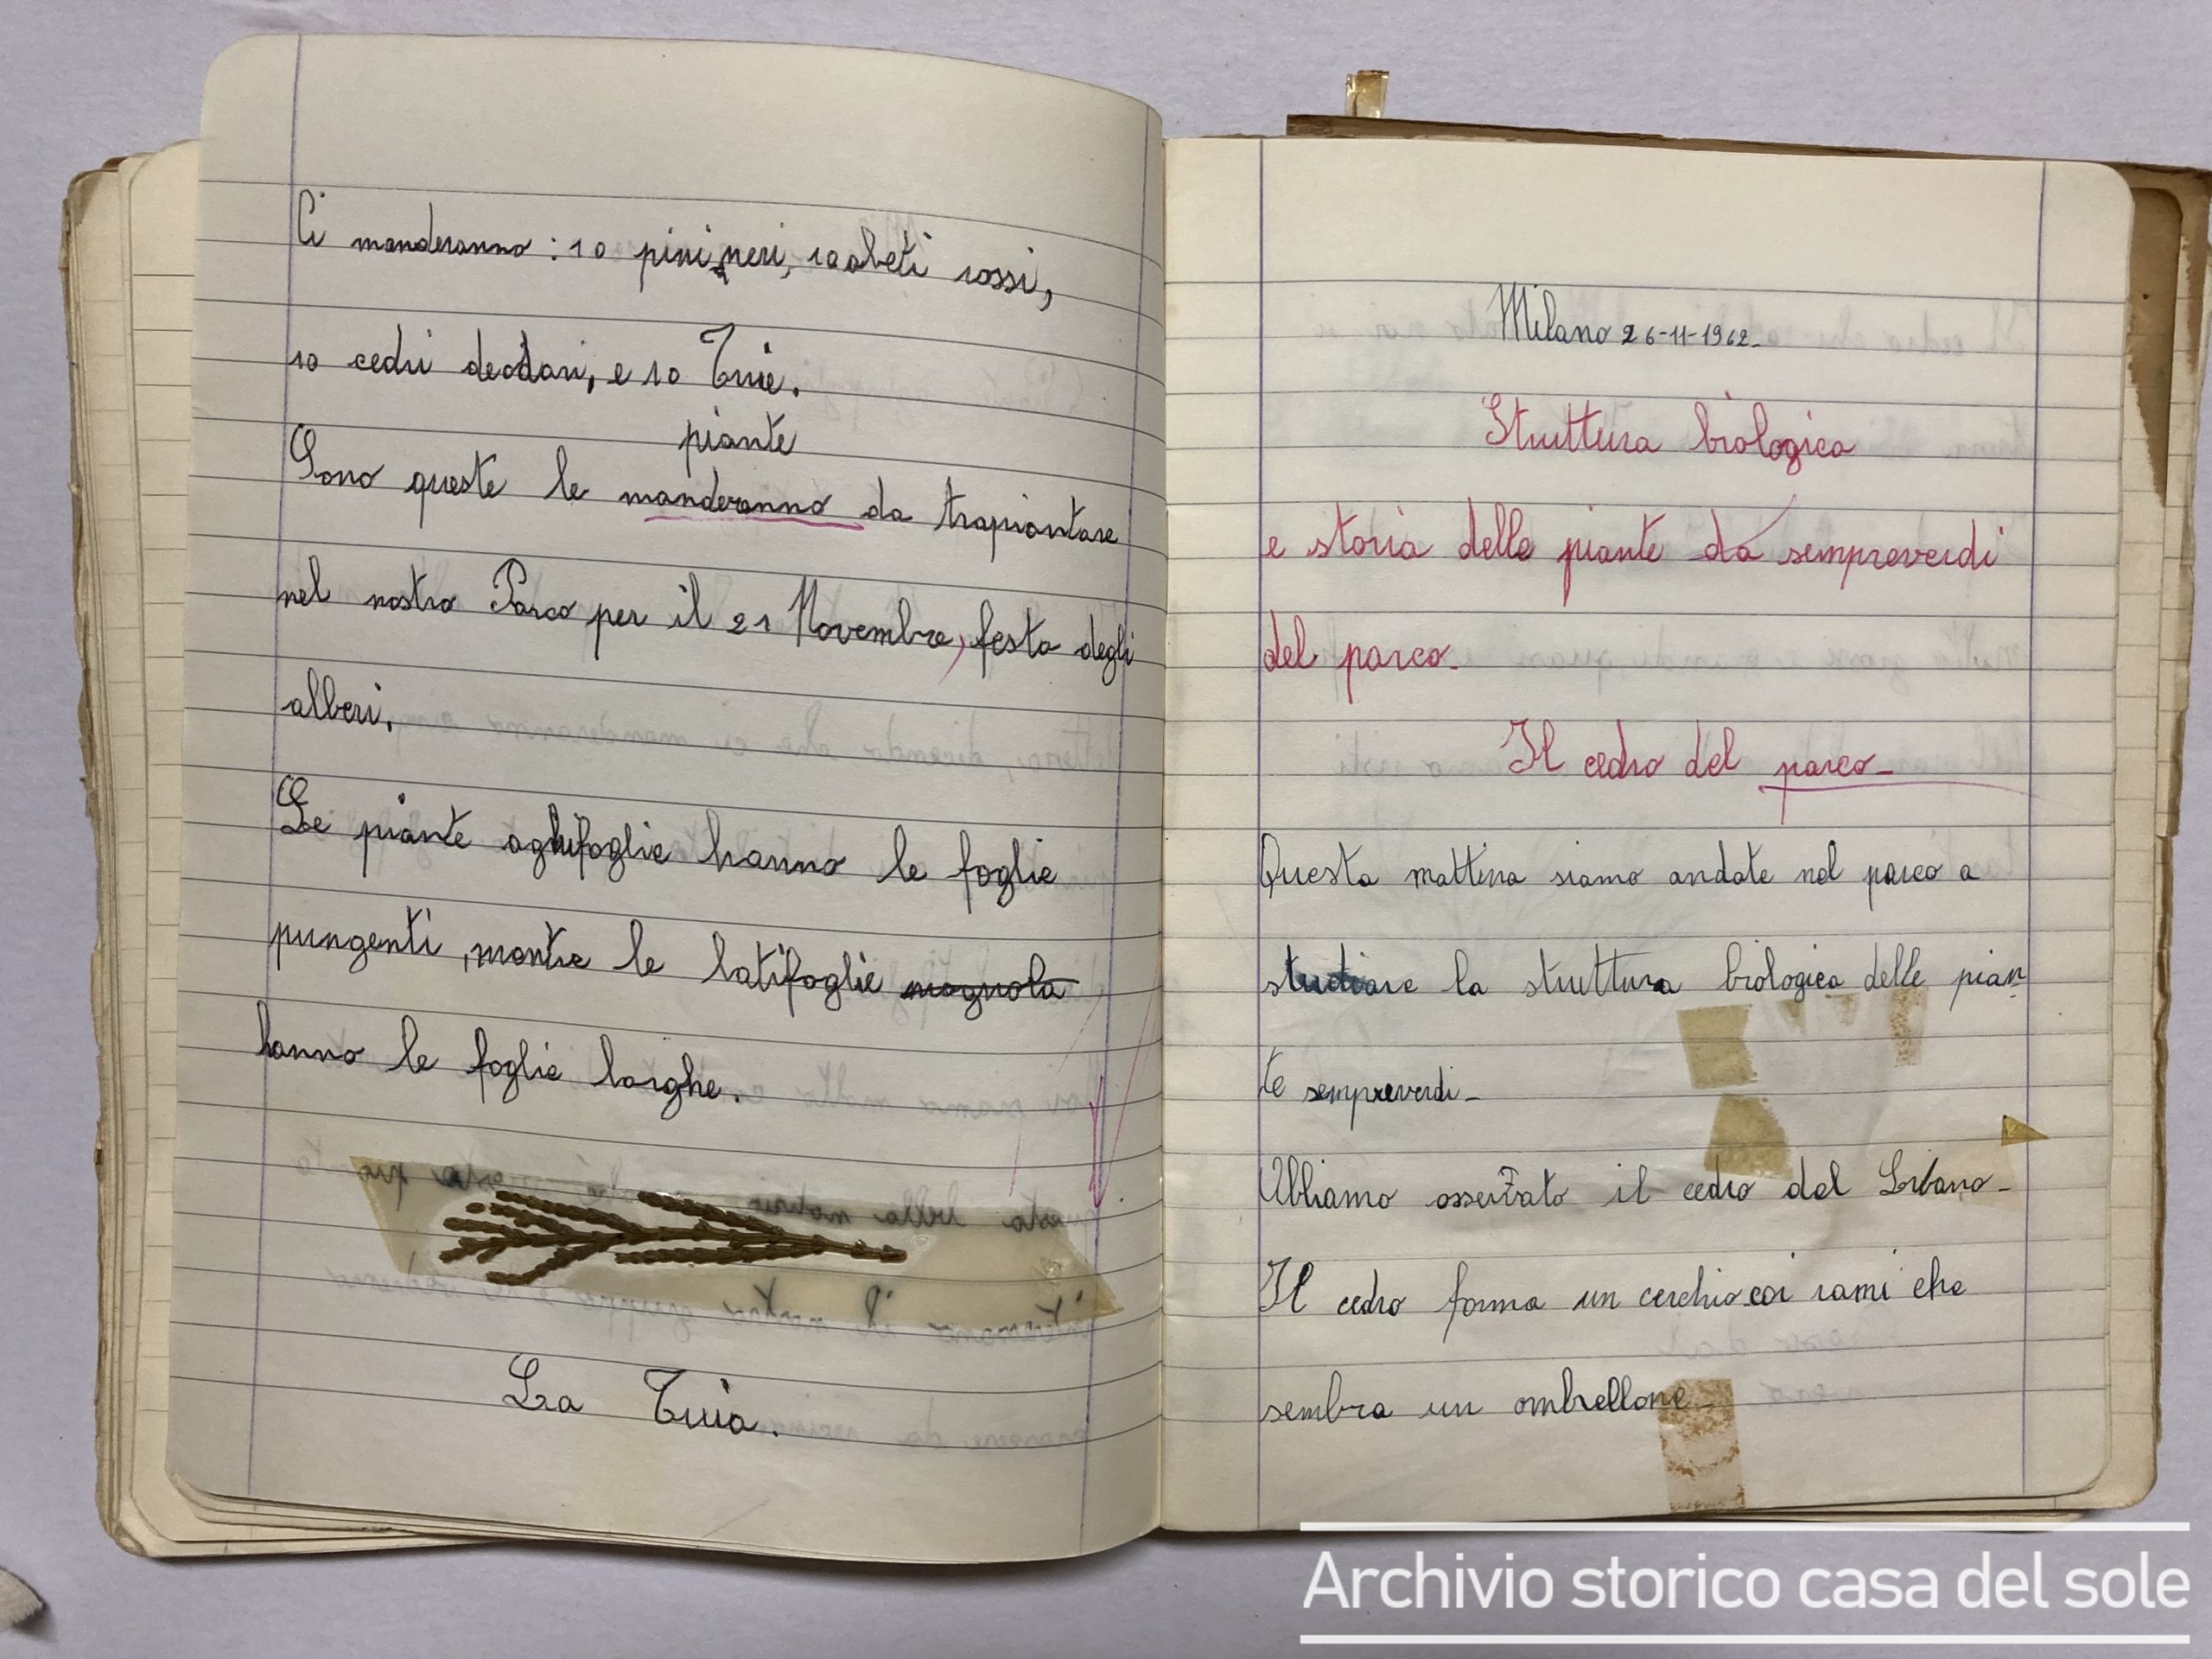 Ci manderanno: 10 pini neri, 10 abeti rossi,
10 cedri deodari, e 10 Tuie.
piante
Sono queste le manderanno da trapiantare
nel nostro Parco per il 21 Novembre, festa degli
alberi.
Le piante aghifoglie hanno le foglie
pungenti, mentre le latifoglie magnola
hanno le foglie larghe.
La Tuia.
Milano 26-11-1962-
Struttura biologica
e storia delle piante da sempreverdi
del parco-
Il cedro del parco-
Questa mattina siamo andate nel parco a
studiare la struttura biologica delle pian-
te sempreverdi-
Abbiamo osservato il cedro del Libano-
Il cedro forma un cerchio coi rami che
sembra un ombrellone-
Archivio storico casa del sole